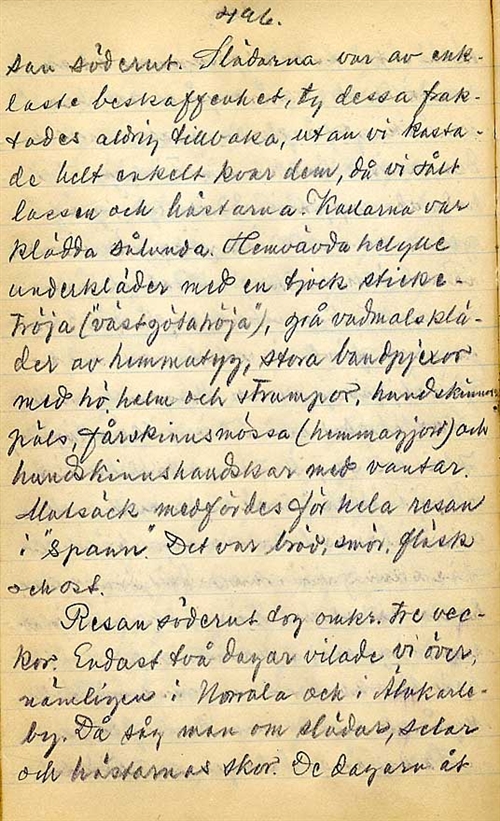 496.
san söderut. Slädarna var av enk-
laste beskaffenhet, ty dessa frak-
tades aldrig tillbaka, utan vi kasta-
de helt enkelt kvar dem, då vi sålt
lassen och hästarna. Karlarna var
klädda sålunda. Hemvävda helylle
underkläder med en tjock sticke-
tröja ("västgötatröja"), grå vadmalsklä-
der av hemmatyg, stora bandpjexor
med hö, halm och strumpor, hundskinns
päls, fårskinnsmössa (hemmagjord) och
hundskinnshandskar med vantar.
Matsäck medfördes för hela resan
i "spann". Det var bröd, smör, fläsk
och ost.
Resan söderut tog omkr. tre vec-
kor. Endast två dagar vilade vi över,
nämligen i Norrala och i Älvkarle-
by. Då såg man om slädar, selar
och hästarnas skor. De dagarna åt